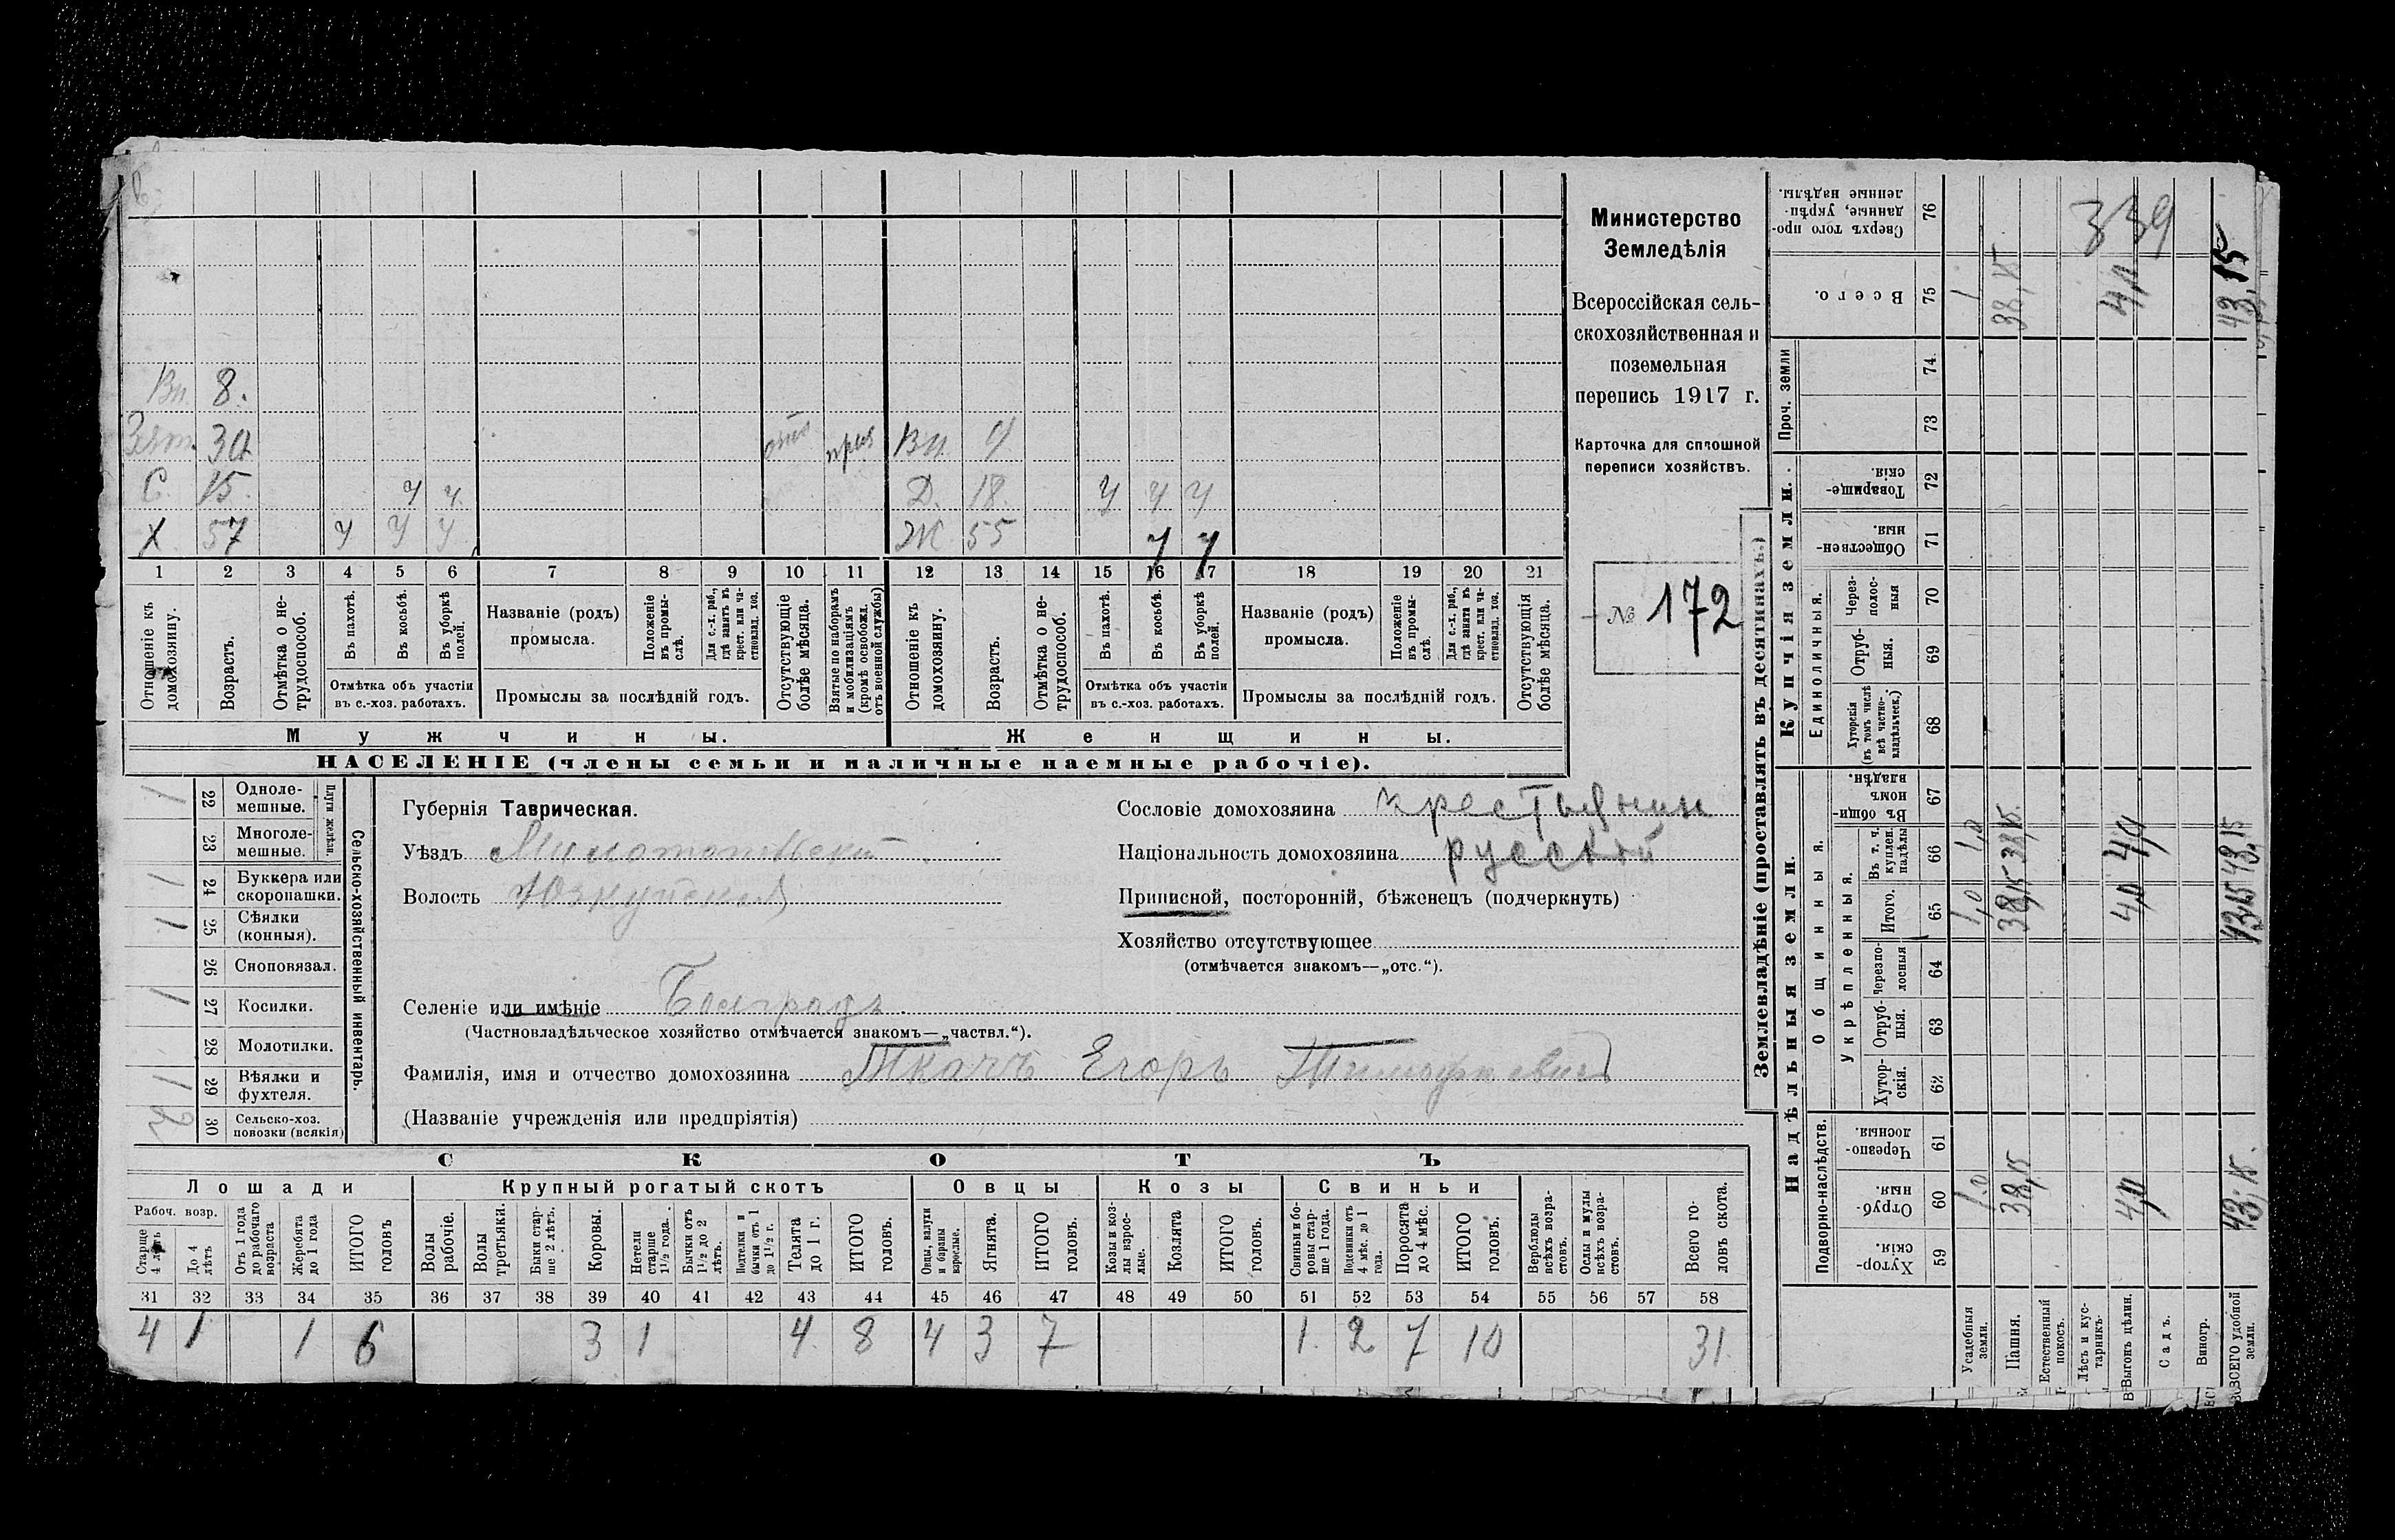 Вн. 8.
Зят. 30 отс приз Вн. 9
С. 15. ч ч Д. 18. ч ч ч
Х 57 ч ч ч Ж 55 ч ч
1 2 3 4 5 6 7 8 9 10 11 12 13 14 15 16 17 18 19 20 21
Отношеніе къ домохозяину.
Возрастъ.
Отмѣтка о не-трудоспособ.
Въ пахотѣ.
Въ косьбѣ.
Въ уборкѣ полей.
Отмѣтка объ участіи въ с.-хоз. работахъ.
Названіе (родъ) промысла.
Положеніе въ промы-слѣ.
Для с.-х. раб., гдѣ занятъ въ крест. или ча-стновлад. хоз.
Промыслы за послѣдній годъ.
Отсутствующіе болѣе мѣсяца.
Взятые по наборамъ и мобилизаціямъ (кромѣ освобожд. отъ военной службы)
Отношеніе къ домохозяину.
Возрастъ.
Отмѣтка о не-трудоспособ.
Въ пахотѣ.
Въ косьбѣ.
Въ уборкѣ полей.
Отмѣтка объ участіи въ с.-хоз. работахъ.
Названіе (родъ) промысла.
Положеніе въ промы-слѣ.
Для с.-х. раб., гдѣ занята въ крест. или ча-стновлад. хоз.
Промыслы за послѣдній годъ.
Отсутствующія болѣе мѣсяца.
Мужчины. Женщины.
НАСЕЛЕНІЕ (члены семьи и наличные наемные рабочіе).
Министерство
Земледѣлія
Всероссійская сель-
скохозяйственная и
поземельная
перепись 1917 г.
Карточка для сплошной
переписи хозяйствъ.
№ 172
1 22 Одноле-мешные.
23 Многоле-мешные.
Плуги желѣзн.
1 24 Буккера или скоропашки.
1 25 Сѣялки (конныя).
26 Сноповязал.
1 27 Косилки.
28 Молотилки.
1 29 Вѣялки и фухтеля.
2 30 Сельско-хоз. повозки (всякія)
Сельско-хозяйственный инвентарь.
Губернія Таврическая.
Уѣздъ Мелитопольский
Волость Юзкуйская
Селеніе или имѣніе Болградъ
(Частновладѣльческое хозяйство отмѣчается знакомъ—„частвл.“).
Фамилія, имя и отчество домохозяина Ткачъ Егоръ Тимофеевичъ
(Названіе учрежденія или предпріятія)
Сословіе домохозяина крестьянин
Національность домохозяина русский
Приписной, посторонній, бѣженец (подчеркнуть)
Хозяйство отсутствующее
(отмѣчается знакомъ—„отс.“).
СКОТЪ
Лошади Крупный рогатый скотъ Овцы Козы Свиньи
Рабоч. возр.
Старше 4 лѣтъ
До 4 лѣтъ
Отъ 1 года до рабочаго возраста
Жеребята до 1 года
ИТОГО головъ
Волы рабочіе.
Волы третьяки.
Быки стар-ше 2 лѣтъ.
Коровы.
Нетели старше 1½ года.
Бычки отъ 1½ до 2 лѣтъ.
Подтелки и бычки отъ 1 до 1½ г.
Телята до 1 г.
ИТОГО головъ.
Овцы, валухи и бараны взрослые.
Ягнята.
ИТОГО головъ.
Козы и коз-лы взрос-лые.
Козлята
ИТОГО головъ.
Свиньи и бо-ровы стар-ше 1 года.
Подсвинки отъ 4 мѣс. до 1 года.
Поросята до 4 мѣс.
ИТОГО головъ.
Верблюды всѣхъ возра-стовъ.
Ослы и мулы всѣхъ возра-стовъ.
Всего го-ловъ скота.
31 32 33 34 35 36 37 38 39 40 41 42 43 44 45 46 47 48 49 50 51 52 53 54 55 56 57 58
4 1 1 6 3 1 4 8 4 3 7 1 2 7 10 31
Землевладѣніе (проставлять въ десятинахъ.)
Надѣльныя земли. Купчія земли. Проч. земли
Подворно-наслѣдств. Общинныя. Укрѣпленныя. Единоличныя.
Сверхъ того про-данные, укрѣп-ленные надѣлы. 76 339
Всего. 75 1 38,15 4,0 43,15
74.
73
Товарище-скія. 72
Обществен-ныя. 71
Через-полос-ныя 70
Отруб-ныя. 69
Хуторскія (въ томъ числѣ всѣ частно-владѣльческ.) 68
Въ общи-номъ владѣн. 67
Въ т. ч. куплен. надѣлы 66 1,0 38,15 4,0 43,15
Итого. 65 1,0 38,15 4,0 43,15
Черезпо-лосныя 64
Отруб-ныя. 63
Хутор-скія. 62
Черезпо-лосныя. 61
Отруб-ныя. 60 1.0 38,15 4,0 43,15.
Хутор-скія. 59
Усадебныя земли.
Пашня.
Естественный покосъ.
Лѣсъ и кус-тарникъ.
Выгонъ цѣлин.
Садъ.
Виногр.
ВСЕГО удобной земли.